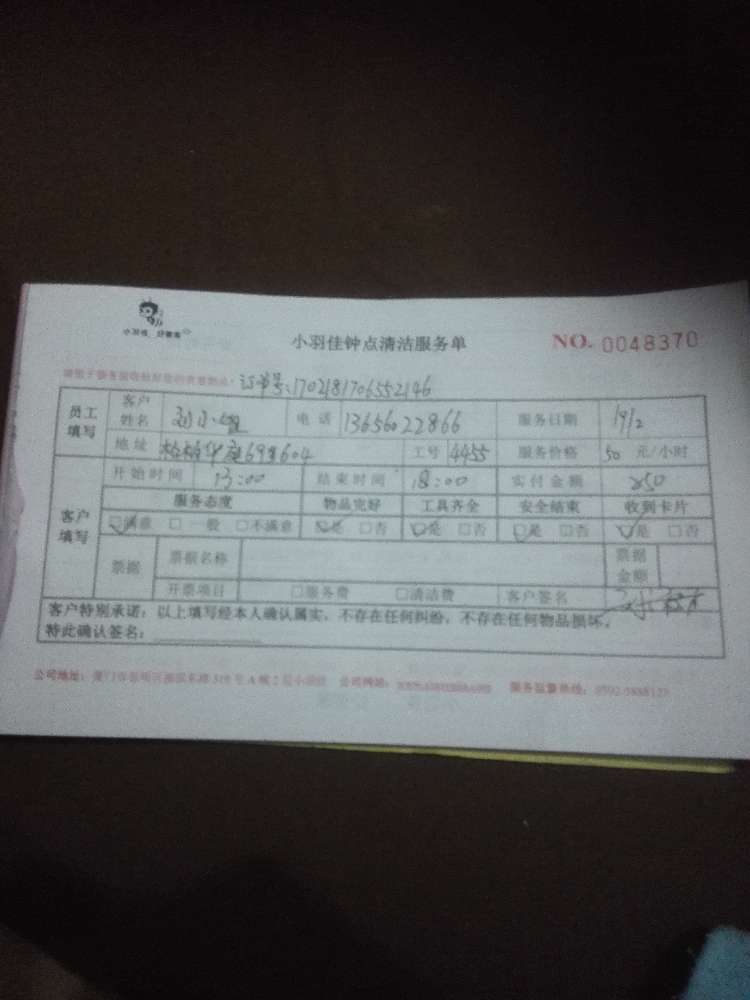 小羽佳 好管家
小羽佳钟点清洁服务单 NO. 0048370
订单号:1702181706552146
员工填写 客户姓名 电话 13656022866 服务日期 19/2
地址 华庭69#604 工号 4455 服务价格 50 元/小时
客户填写 开始时间 13:00 结束时间 18:00 实付金额 250
服务态度 物品完好 工具齐全 安全结束 收到卡片
□满意 □一般 □不满意 □是 □否 □是 □否 □是 □否 □是 □否
票据 票据名称 票据金额
开票项目 □服务费 □清洁费 客户签名
客户特别承诺：以上填写经本人确认属实，不存在任何纠纷，不存在任何物品损坏，
特此确认签名：
公司地址： 公司网站： 服务监督热线：